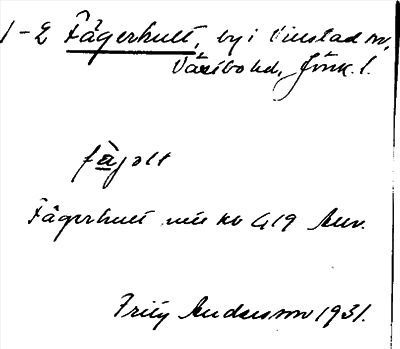 1-2 Fagerhult, by i Vinstad sn,
Västbo hd, Jönk. l.
fàjolt
Fagerhult
419
Fritz Andersson 1931.